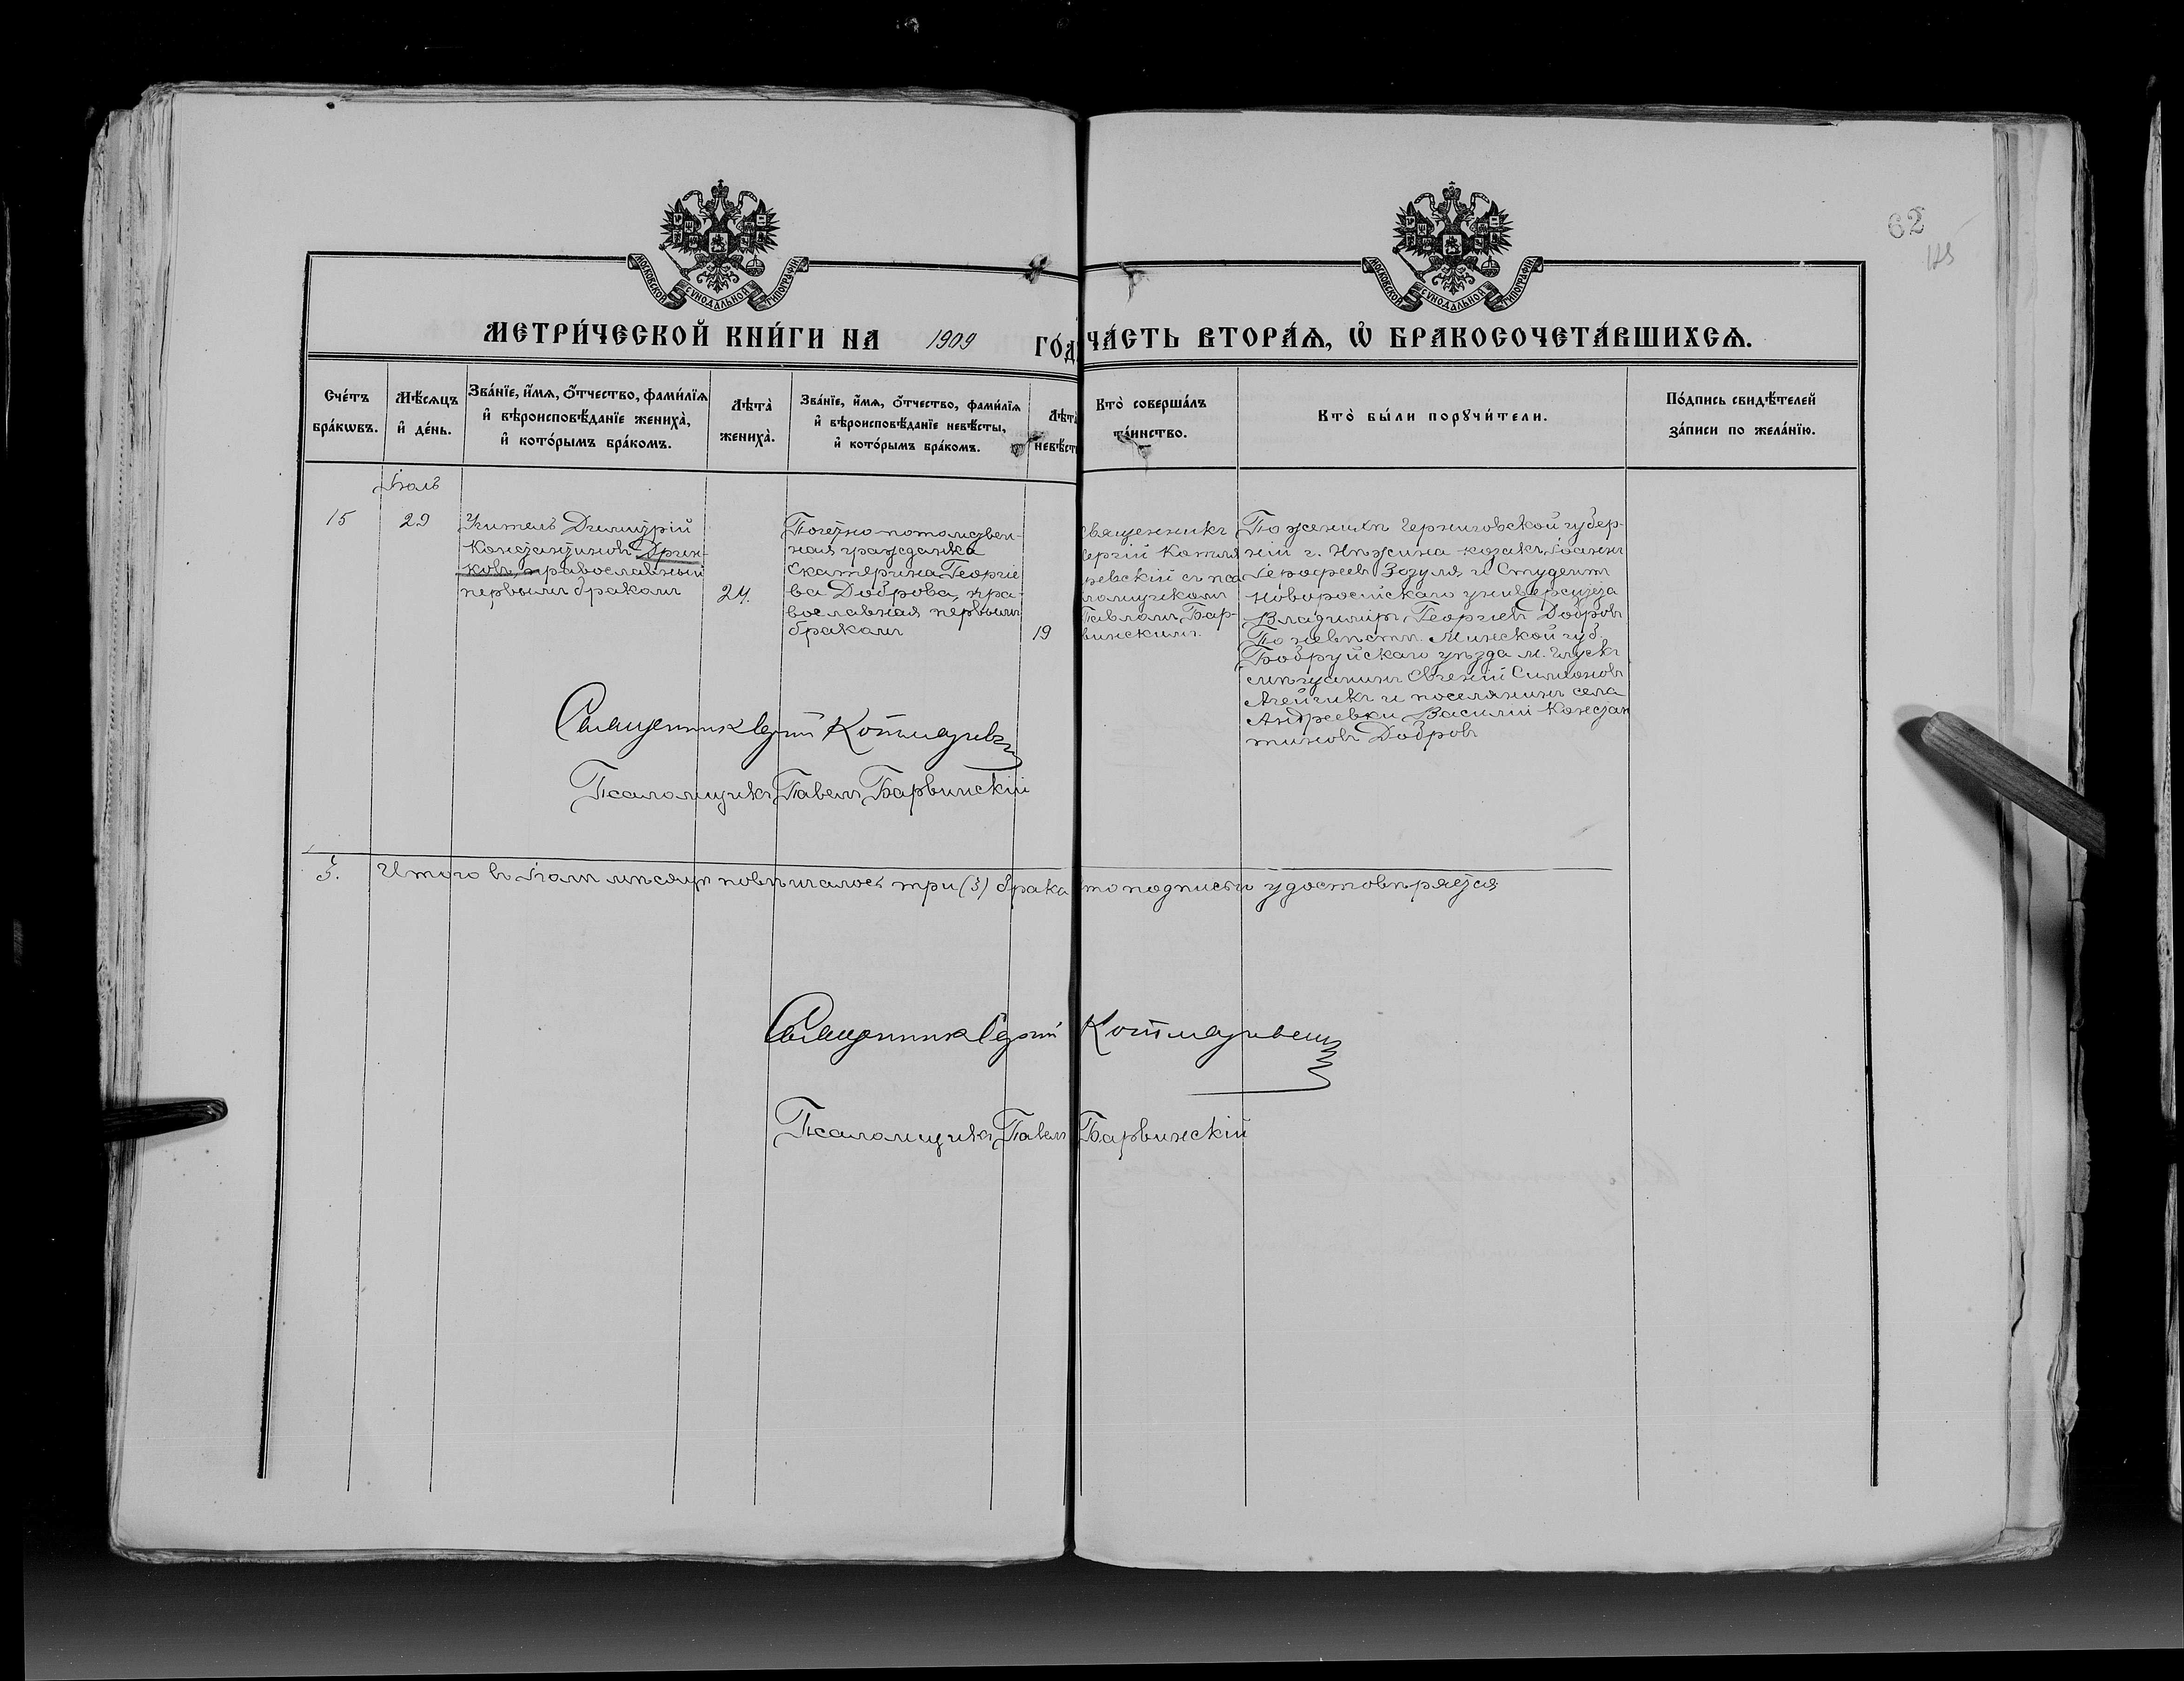 62
МОСКОВСКОЙ СѴНОДАЛЬНОЙ ТИПОГРАФІИ
МОСКОВСКОЙ СѴНОДАЛЬНОЙ ТИПОГРАФІИ
МЕТРИ́ЧЕСКОЙ КНИ́ГИ НА 1909 ГО́Д
ЧА́СТЬ ВТОРА́Ѧ, Ѡ҆ БРАКОСОЧЕТА́ВШИХСѦ.
Сче́тъ
бра́кѡвъ.
Мѣ́сѧцъ
и҆ де́нь.
Зва́нїе, и҆́мѧ, ѻ҆́тчество, фами́лїѧ
и҆ вѣроисповѣ́данїе жениха̀,
и҆ кото́рымъ бра́комъ.
Лѣта̀
жениха̀.
Зва́нїе, и҆́мѧ, ѻ҆́тчество, фами́лїѧ
и҆ вѣроисповѣ́данїе невѣ́сты,
и҆ кото́рымъ бра́комъ.
Лѣта̀
невѣ́ст
Кто̀ соверша́лъ
та́инство.
Кто̀ бы́ли порꙋчи́тели.
По́дпись свидѣ́телей
за́писи по жела́нїю.
Іюль
15
29
Учитель Димитрій
Константиновъ Дрин-
ковъ, православный
первымъ бракомъ
24.
Почетно потомствен-
ная гражданка
Екатерина Георгіе
ва Доброва, пра
вославная первымъ
бракомъ
19
Священникъ
Сергій Котля
ревскій съ пса
ломщикомъ
Павломъ Бар-
винскимъ.
По женихѣ Черниговской губер-
ніи г. Нѣжина козакъ Іоаннъ
Ерофеевъ Зозуля и Студентъ
Новоросійскаго университета
Владиміръ Георгіевъ Добровъ
По невѣстѣ. Минской губ.
Бобруйскаго уѣзда м. Глускъ
мѣщанинъ Евгеній Симоновъ
Агейчикъ и поселянинъ села
Андреевки Василій Констан
тиновъ Добровъ
Священникъ Сергій Котляревскій
Псаломщикъ Павелъ Барвинскій
3. Итого въ Іюлѣ мѣсяцѣ повѣнчалось три (3) брака что подписью удостовѣряется
Священникъ Сергій Котляревскій
Псаломщикъ Павелъ Барвинскій